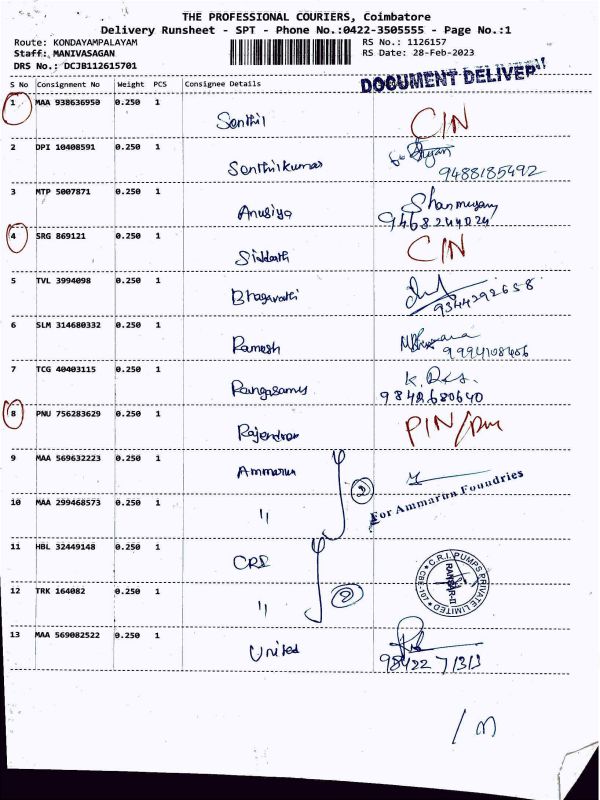 THE PROFESSIONAL COURIERS, Coimbatore
Delivery Runsheet - SPT - Phone No.:0422-3505555 - Page No.:1
Route: KONDAYAMPALAYAM RS No.: 1126157
Staff: MANIVASAGAN RS Date: 28-Feb-2023
DRS No.: DCJB112615701
DOCUMENT DELIVER
S No Consignment No Weight PCS Consignee Details
1 MAA 938636950 0.250 1 Senthil CIN
2 DPI 10408591 0.250 1 Senthilkumar
9488185492
3 MTP 5007871 0.250 1 Anusiya Shanmugam
9468244024
4 SRG 869121 0.250 1 Siddarth CIN
5 TVL 3994098 0.250 1 Bhagavathi
9344292658
6 SLM 314680332 0.250 1 Ramesh
9994108406
7 TCG 40403115 0.250 1 Rangasamy
9842680640
8 PNU 756283629 0.250 1 Rajendran PIN/
9 MAA 569632223 0.250 1 Ammarun
2 For Ammarun Foundries
10 MAA 299468573 0.250 1 "
11 HBL 32449148 0.250 1 CRI
C.R.I. PUMPS PRIVATE LIMITED
12 TRK 164082 0.250 1 " 2
13 MAA 569082522 0.250 1 United
98422 71313